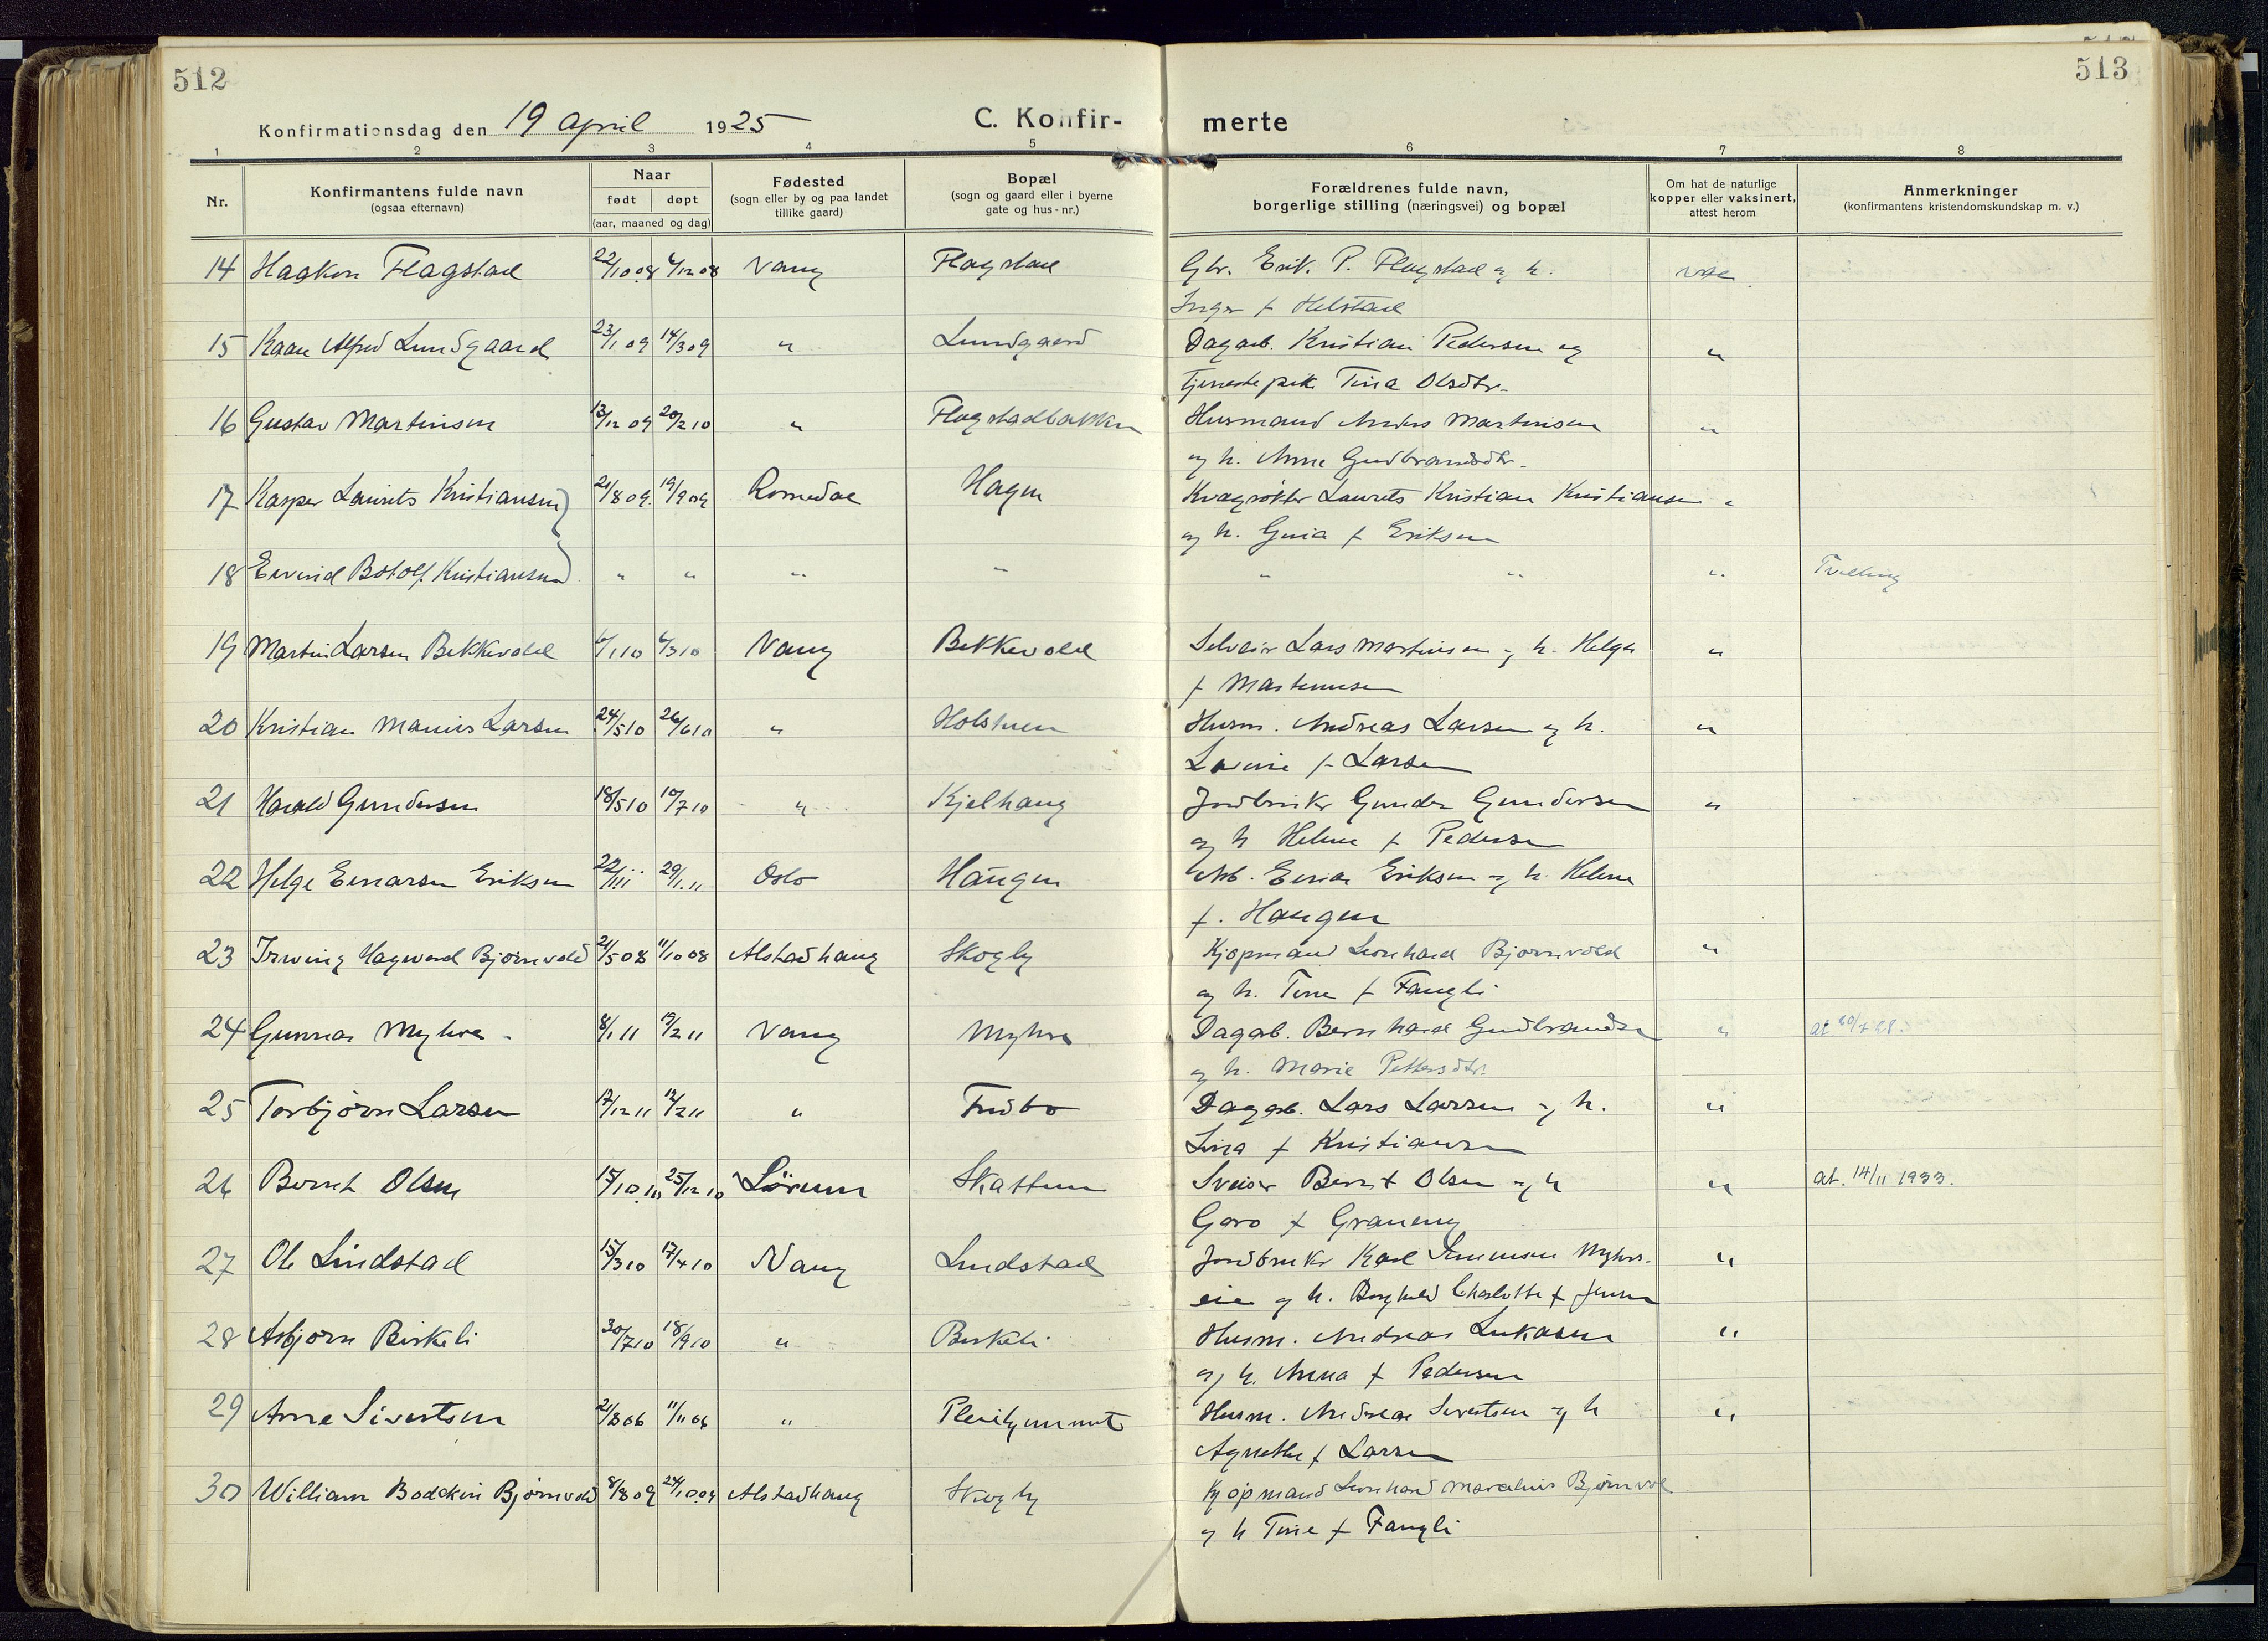 512
513
Konfirmationsdag den 19 april 1925
C. Konfirmerte
1 2 3 4 5 6 7 8
Nr. Konfirmantens fulde navn (ogsaa efternavn) Naar født døpt (aar, maaned og dag) Fødested (sogn eller by og paa landet tillike gaard) Bopæl (sogn og gaard eller i byerne gate og hus-nr.) Forældrenes fulde navn, borgerlige stilling (næringsvei) og bopæl Om hat de naturlige kopper eller vaksinert, attest herom Anmerkninger (konfirmantens kristendomskundskap m. v.)
14 Haakon Flagstad 22/10 08 6/12 08 Vang Flagstad Gbr. Erik P. Flagstad og h. vac.
Inger f Helstad
15 Kaare Alfred Lundgaard 23/1 09 14/3 09 " Lundgaard Dagarb. Kristian Pedersen og "
tjenestepike Tina Olsdtr.
16 Gustav Martinsen 13/12 09 20/2 10 " Flagstadbakken Husmand Anders Martinsen "
og h. Anne Gudbrandsdtr.
17 Kasper Laurits Kristiansen 21/8 09. 19/9 09 Romedal Hagen Kvægrøkter Laurits Kristian Kristiansen "
og h. Guia f Eriksen
18 Eivind Botolf Kristiansen " " " " " " " Tvilling
19 Martin Larsen Bekkevold 6/1 10 6/3 10 Vang Bekkevold Selveier Lars Martinsen og h. Helga "
f Martinusen
20 Kristian Marius Larsen 24/5 10 26/6 10 " Holstuen Husm. Andreas Larsen og h. "
Lovine f Larsen
21 Harald Gundersen 18/5 10 10/7 10 " Kjelhaug Jordbruker Gunder Gundersen "
og h Helene f Pedersen
22 Helge Einarsen Eriksen 22/1 11 29/1 11 Oslo Haugen Arb. Einar Eriksen og h. Helene
f. Haugen
23 Irwing Hagward Bjørnvold 21/5 08 11/10 08 Alstadhaug Skogly Kjøpmand Leonhard Bjørnvold "
og h. Tine f Fangli
24 Gunnar Myhre. 8/1 11 19/2 11 Vang Myhre Dagarb. Bernhard Gudbrandsen " at.
og h. Marie Pettersdtr.
25 Torbjørn Larsen 17/12 11 12/2 11 " Fredbo Dagarb. Lars Larsen og h. "
Lina f Kristiansen
26 Bernt Olsen 15/10 10 25/12 10 Sörum Skattum Sveiser Bernt Olsen og h " at. 14/11 1933.
Goro f Graneng
27 Ole Lindstad 15/3 10 17/4 10 Vang Lindstad Jordbruker Karl Simensen Myhrs- "
eie og h. Borghild Charlotte f Jensen
28 Asbjørn Birkeli 30/7 10 18/9 10 " Birkeli Husm. Andreas Lukasen "
og h. Anna f Pedersen
29 Arne Sivertsen 21/8 06 11/11 06 " Husm. Andreas Sivertsen og h "
Agnethe f Larsen
30 William Bodckin Bjørnvold 8/8 09 24/10 09 Alstadhaug Skogly Kjøpmand Leonhard Bjørnvol
og h Tine f Fangli